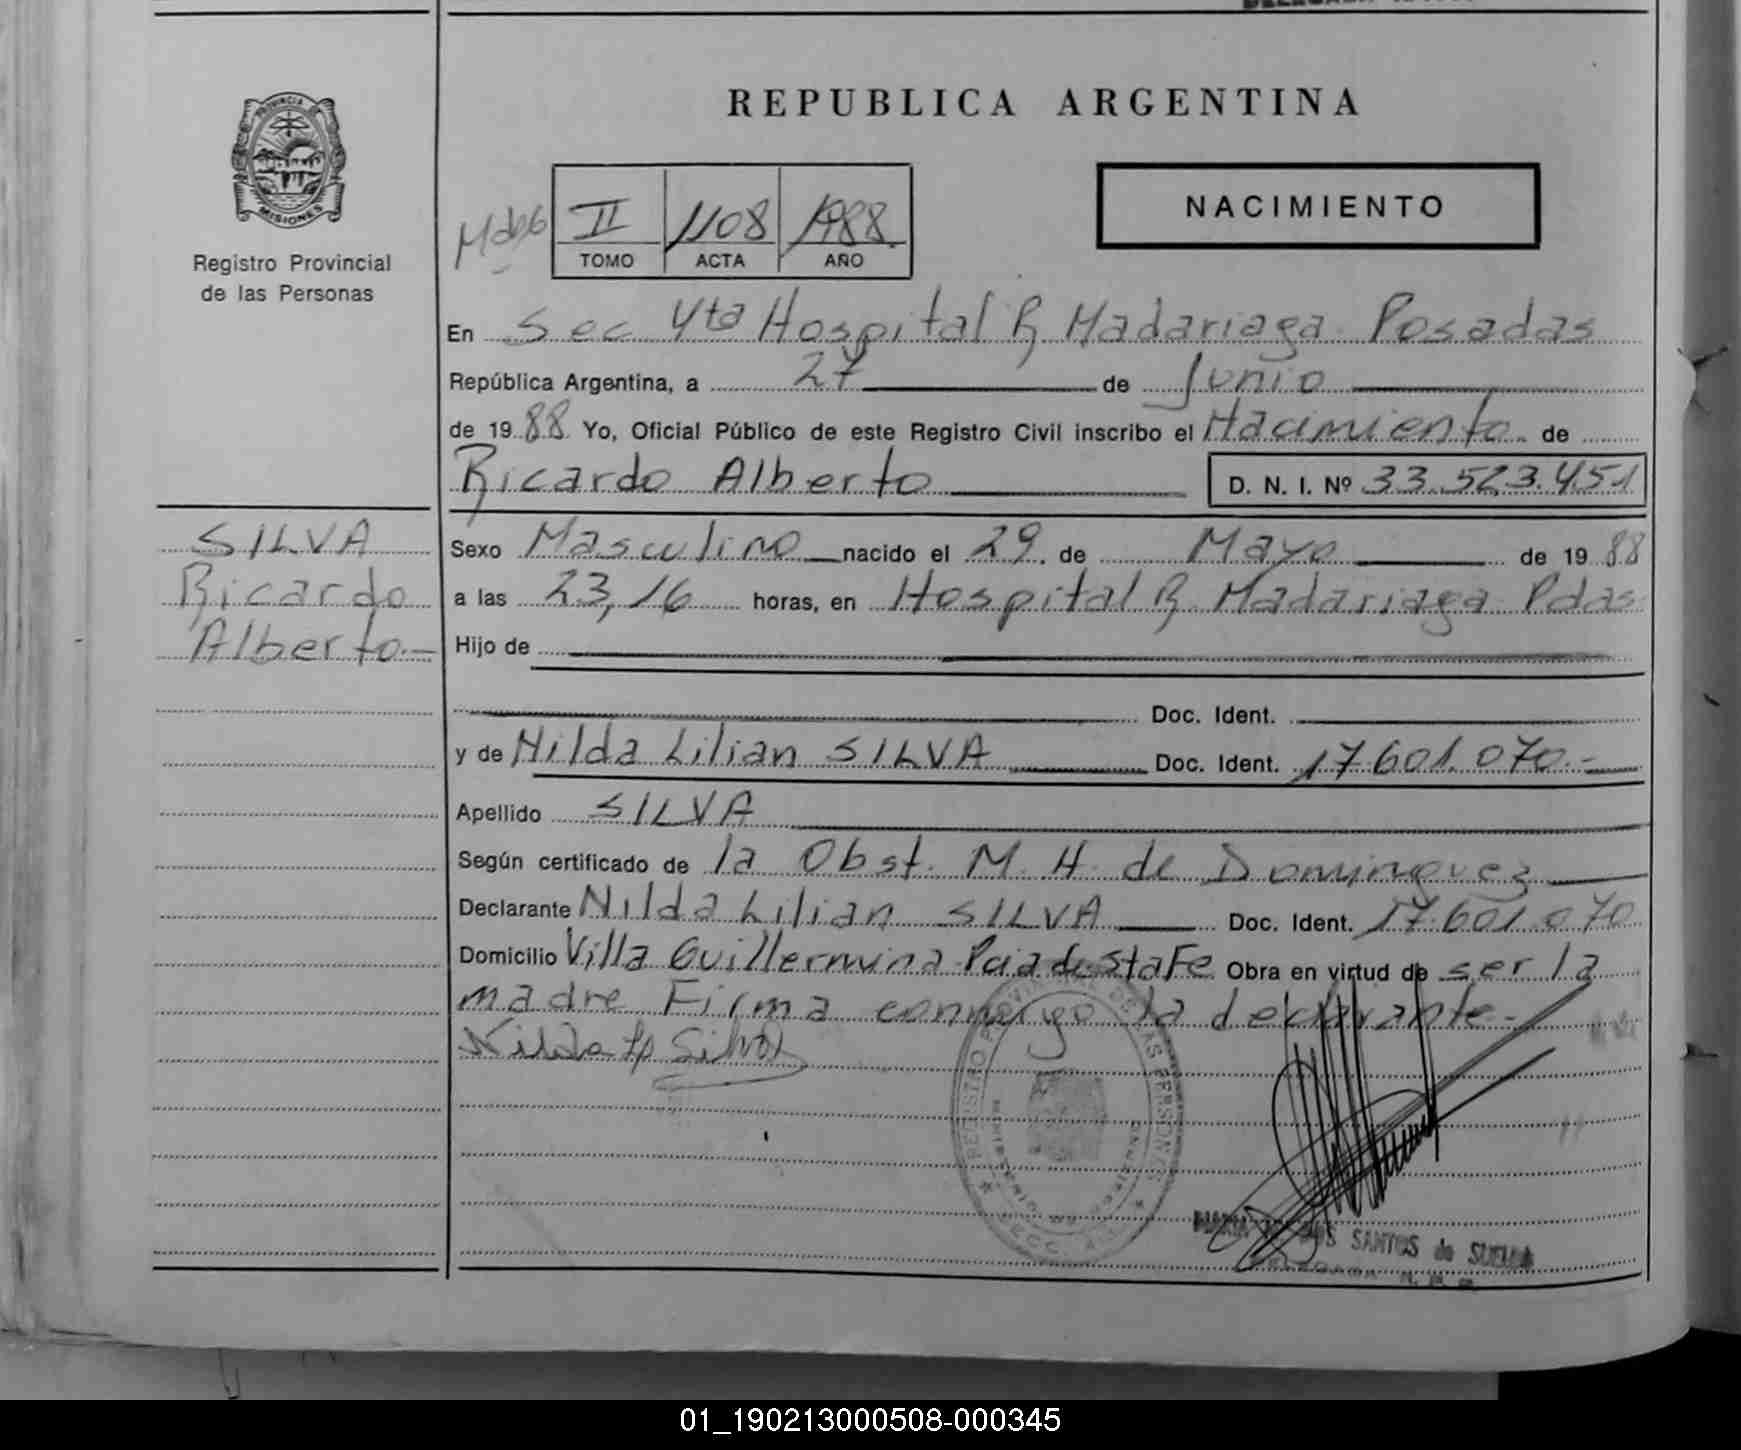 REPUBLICA ARGENTINA
PROVINCIA DE
MISIONES
Registro Provincial
de las Personas
NACIMIENTO
II 1108 1988
TOMO ACTA AÑO
En Sec 4ta Hospital R Madariaga Posadas
República Argentina, a 27 de Junio
de 1988 Yo, Oficial Público de este Registro Civil inscribo el Nacimiento de
Ricardo Alberto D. N. I. Nº 33.523.451
SILVA
Ricardo
Alberto.-
Sexo Masculino nacido el 29 de Mayo de 1988
a las 23,16 horas, en Hospital R. Madariaga Pdas
Hijo de
Doc. Ident.
y de Nilda Lilian SILVA Doc. Ident. 17.601.070.-
Apellido SILVA
Según certificado de la Obst. M. H. de Dominguez
Declarante Nilda Lilian SILVA Doc. Ident. 17.601.070
Domicilio Villa Guillermina Pcia de Sta Fe Obra en virtud de ser la
madre Firma conmigo la declarante.-
Nilda L Silva
REGISTRO PROVINCIAL DE LAS PERSONAS
MINISTERIO DE
SECC.
MARIA DOS SANTOS de
DELEGADA
01_190213000508-000345